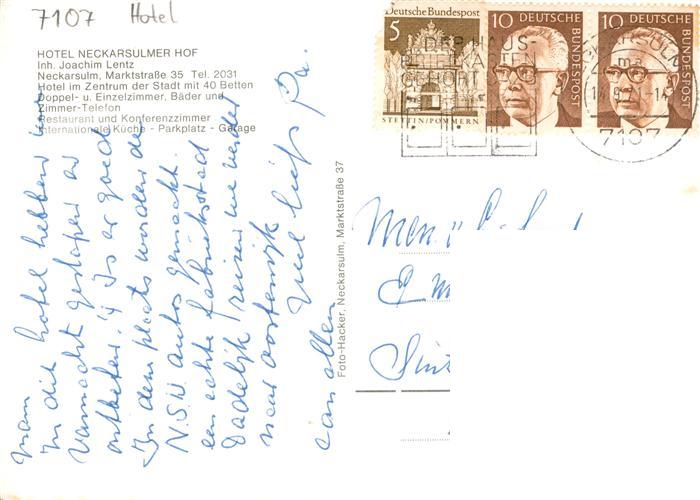 7107 Hotel
HOTEL NECKARSULMER HOF
Inh. Joachim Lentz
Neckarsulm, Marktstraße 35 Tel. 2031
Hotel im Zentrum der Stadt mit 40 Betten
Doppel- u. Einzelzimmer, Bäder und
Zimmer-Telefon
Restaurant und Konferenzzimmer
Internationale Küche - Parkplatz - Garage
Mam
In dit hotel hebben we
vannacht geslapen en
ontbeten. 't Is er goed
In deze plaats worden de
N.S.U. autos gemaakt.
een echte fabrieksstad
Dadelijk reizen we verder
naar Oostenrijk
Veel liefs Pa.
aan allen
Foto-Hacker, Neckarsulm, Marktstraße 37
Deutsche Bundespost
5
STETTIN/POMMERN
10 DEUTSCHE BUNDESPOST
10 DEUTSCHE BUNDESPOST
DER HAUS-
BRIEFKASTEN
GEHÖRT
7107